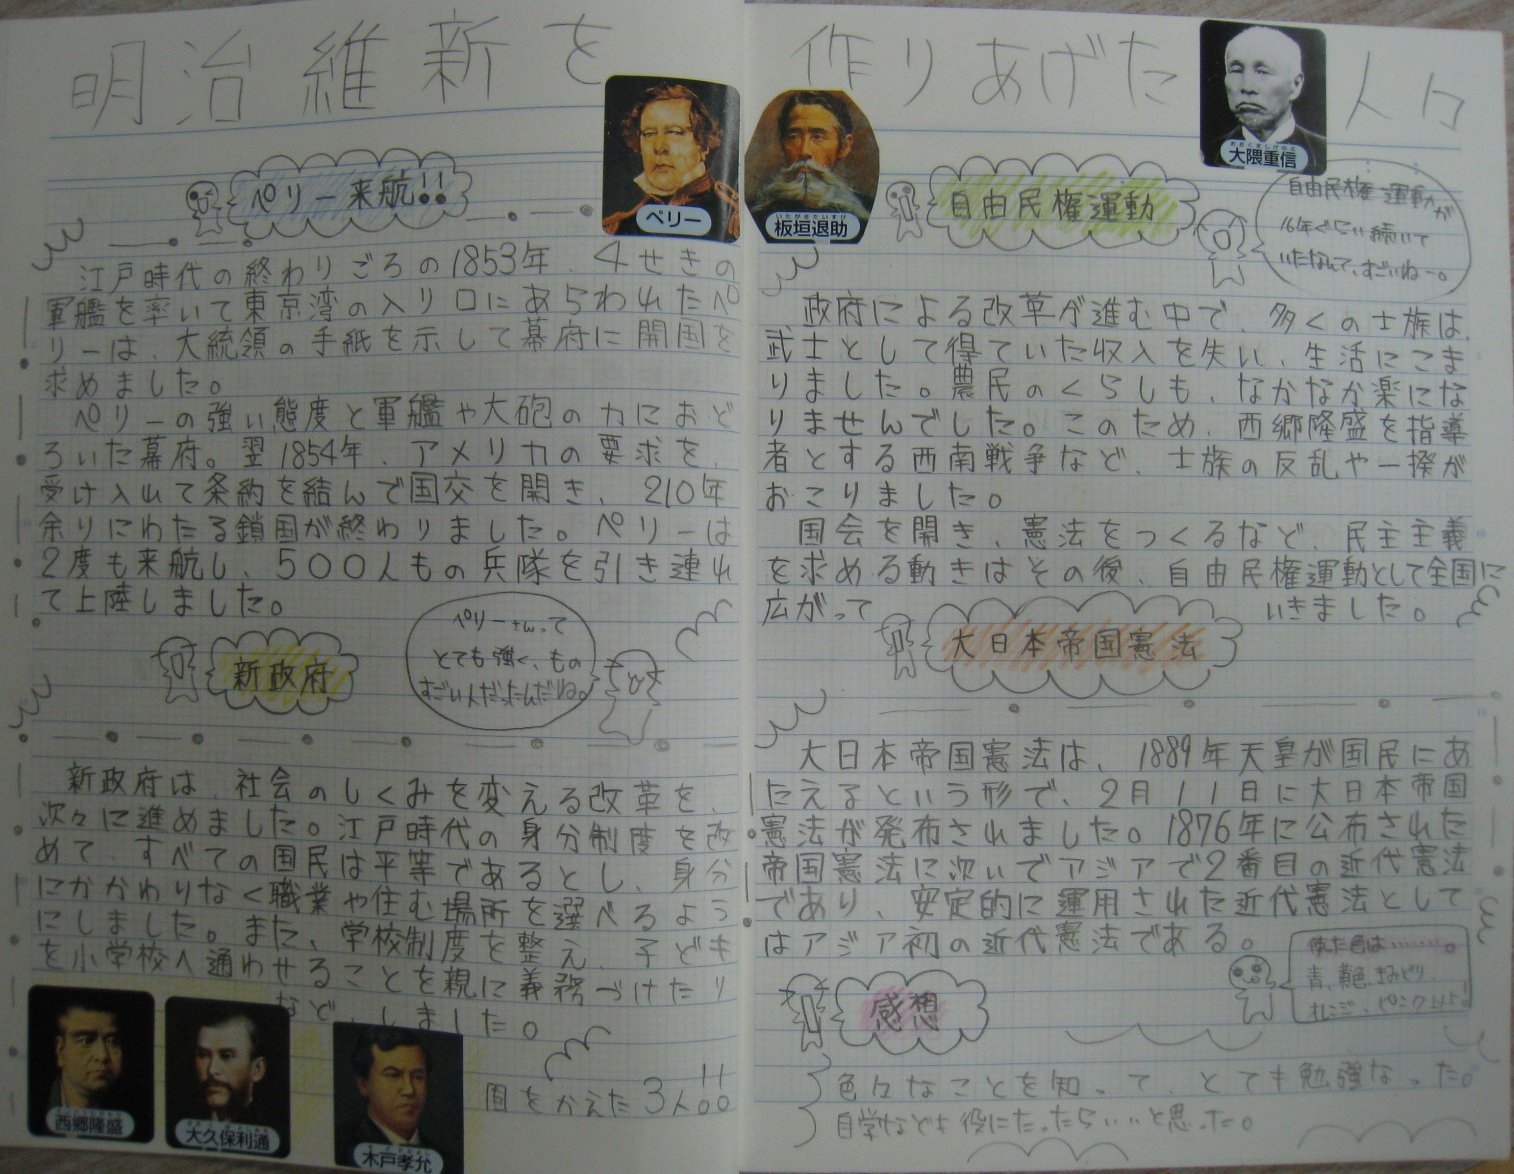 明治維新を作りあげた人々
ペリー
板垣退助
いたがきたいすけ
大隈重信
おおくましげのぶ
ペリー来航!!
江戸時代の終わりごろの1853年、4せきの
軍艦を率いて東京湾の入り口にあらわれたペ
リーは、大統領の手紙を示して幕府に開国を
求めました。
ペリーの強い態度と軍艦や大砲の力におど
ろいた幕府。翌1854年、アメリカの要求を、
受け入れて条約を結んで国交を開き、210年
余りにわたる鎖国が終わりました。ペリーは
2度も来航し、500人もの兵隊を引き連れ
て上陸しました。
ペリーさんって
とても強く、もの
すごい人だったんだね。
新政府
新政府は、社会のしくみを変える改革を、
次々に進めました。江戸時代の身分制度を改
めて、すべての国民は平等であるとし、身分
にかかわりなく職業や住む場所を選べるよう
にしました。また、学校制度を整え、子ども
を小学校へ通わせることを親に義務づけたり
など、しました。
西郷隆盛
大久保利通
木戸孝允
国をかえた3人!!
自由民権運動
自由民権運動が
16年ぐらい続いて
いたなんて、すごいねー。
政府による改革が進む中で、多くの士族は、
武士として得ていた収入を失い、生活にこま
りました。農民のくらしも、なかなか楽にな
りませんでした。このため、西郷隆盛を指導
者とする西南戦争など、士族の反乱や一揆が
おこりました。
国会を開き、憲法をつくるなど、民主主義
を求める動きはその後、自由民権運動として全国に
広がって いきました。
大日本帝国憲法
大日本帝国憲法は、1889年天皇が国民にあ
たえるという形で、2月11日に大日本帝国
憲法が発布されました。1876年に公布された
帝国憲法に次いでアジアで2番目の近代憲法
であり、安定的に運用された近代憲法として
はアジア初の近代憲法である。
使た色は………。
青、黄色、きみどり、
オレンジ、ピンク
感想
色々なことを知って、とても勉強なった。
自学なども役にたったらいいと思った。